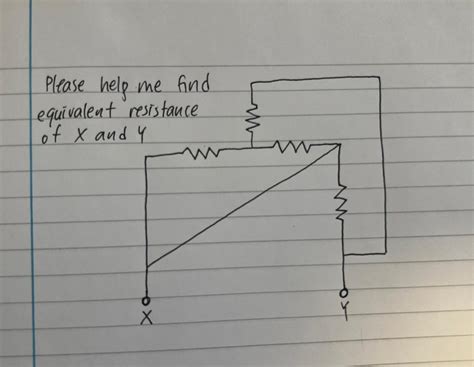 Please help me find
equivalent resistance
of X and Y
X
Y